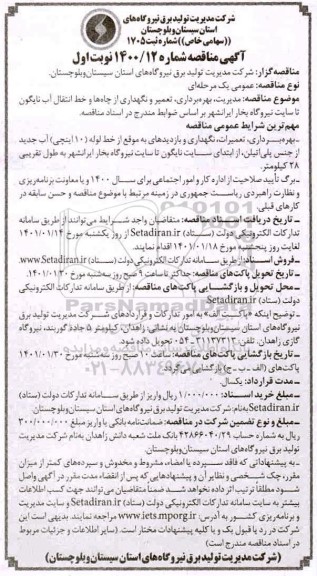 شرکت مدیریت تولید برق نیروگاه‌های
استان سیستان وبلوچستان
((سهامی خاص)) شماره ثبت ۱۷۰۵
آگهی مناقصه شماره ۱۴۰۰/۱۲ نوبت اول
مناقصه‌گزار: شرکت مدیریت تولید برق نیروگاه‌های استان سیستان‌وبلوچستان.
نوع مناقصه: عمومی یک مرحله‌ای
موضوع مناقصه: مدیریت، بهره‌برداری، تعمیر و نگهداری از چاه‌ها و خط انتقال آب نایگون
تا سایت نیروگاه بخار ایرانشهر بر اساس ضوابط مندرج در اسناد مناقصه.
مهم‌ترین شرایط عمومی مناقصه
-بهره‌برداری، تعمیرات، نگهداری و بازدیدهای به موقع از خط لوله (۱۰ اینچی) آب جدید
از جنس پلی‌اتیلن، از ابتدای سایت نایگون تا سایت نیروگاه بخار ایرانشهر به طول تقریبی
۲۸ کیلومتر.
-برگ تأیید صلاحیت از اداره کار و امور اجتماعی برای سال ۱۴۰۰ و یا معاونت برنامه‌ریزی
و نظارت راهبردی ریاست جمهوری در زمینه مرتبط با موضوع مناقصه و حسن سابقه در
کارهای قبلی.
- تاریخ دریافت اسناد مناقصه: متقاضیان واجد شرایط می‌توانند از طریق سامانه
تدارکات الکترونیکی دولت (ستاد) Setadiran.ir از روز یکشنبه مورخ ۱۴۰۱/۰۱/۱۴
لغایت روز پنجشنبه مورخ ۱۴۰۱/۰۱/۱۸ اقدام نمایند.
-فروش اسناد: از طریق سامانه تدارکات الکترونیکی دولت (ستاد) www.Setadiran.ir
- تاریخ تحویل پاکت‌های مناقصه: حداکثر تا ساعت ۹ صبح روز سه‌شنبه مورخ ۱۴۰۱/۰۱/۳۰
- محل تحویل و بازگشایی پاکت‌های مناقصه: از طریق سامانه تدارکات الکترونیکی
دولت (ستاد) Setadiran.ir
- توضیح اینکه «پاکت الف» به امور تدارکات و قراردادهای شرکت مدیریت تولید برق
نیروگاه‌های استان سیستان‌وبلوچستان به نشانی: زاهدان، کیلومتر ۵ جاده گوربند، نیروگاه
گازی زاهدان. تلفن: ۳۱۱۳۷۳۱۳-۰۵۴ تحویل داده شود.
- تاریخ بازگشایی پاکت‌های مناقصه: ساعت ۱۰ صبح روز سه‌شنبه مورخ ۱۴۰۱/۰۱/۳۰
پاکت‌های (الف-ب-ج) بازگشایی می‌گردد.
- مدت قرارداد: یکسال
- مبلغ خرید اسناد: ۱/۰۰۰/۰۰۰ ریال واریز از طریق سامانه تدارکات دولت (ستاد)
Setadiran.ir به‌نام: شرکت مدیریت تولید برق نیروگاه‌های استان سیستان‌وبلوچستان
- مبلغ و نوع تضمین شرکت در مناقصه: ضمانت‌نامه بانکی یا واریز مبلغ ۳۰۰/۰۰۰/۰۰۰
ریال به شماره حساب ۴۲۸۶۶۰۴۰/۲۹ بانک ملت شعبه دانش زاهدان به‌نام شرکت مدیریت
تولید برق نیروگاه‌های استان سیستان‌وبلوچستان.
-به پیشنهاداتی که فاقد سپرده یا امضاء، مشروط و مخدوش و سپرده‌های کمتر از میزان
مقرر، چک شخصی و نظایر آن و پیشنهادهایی که پس از انقضاء مدت مقرر در آگهی واصل
شود مطلقاً ترتیب اثر داده نخواهد شد ضمناً متقاضیان می‌توانند جهت کسب اطلاعات
بیشتر به سایت سامانه تدارکات الکترونیکی دولت (ستاد) Setadiran.ir و سایت مدیریت
و برنامه‌ریزی کشور به آدرس: www.iets.mporg.ir مراجعه نمایند. بدیهی است این
شرکت در رد یا قبول یک و یا کلیه پیشنهادات مختار است. (سایر اطلاعات و جزئیات مربوط
در اسناد مناقصه مندرج است)
(شرکت مدیریت تولید برق نیروگاه‌های استان سیستان وبلوچستان)